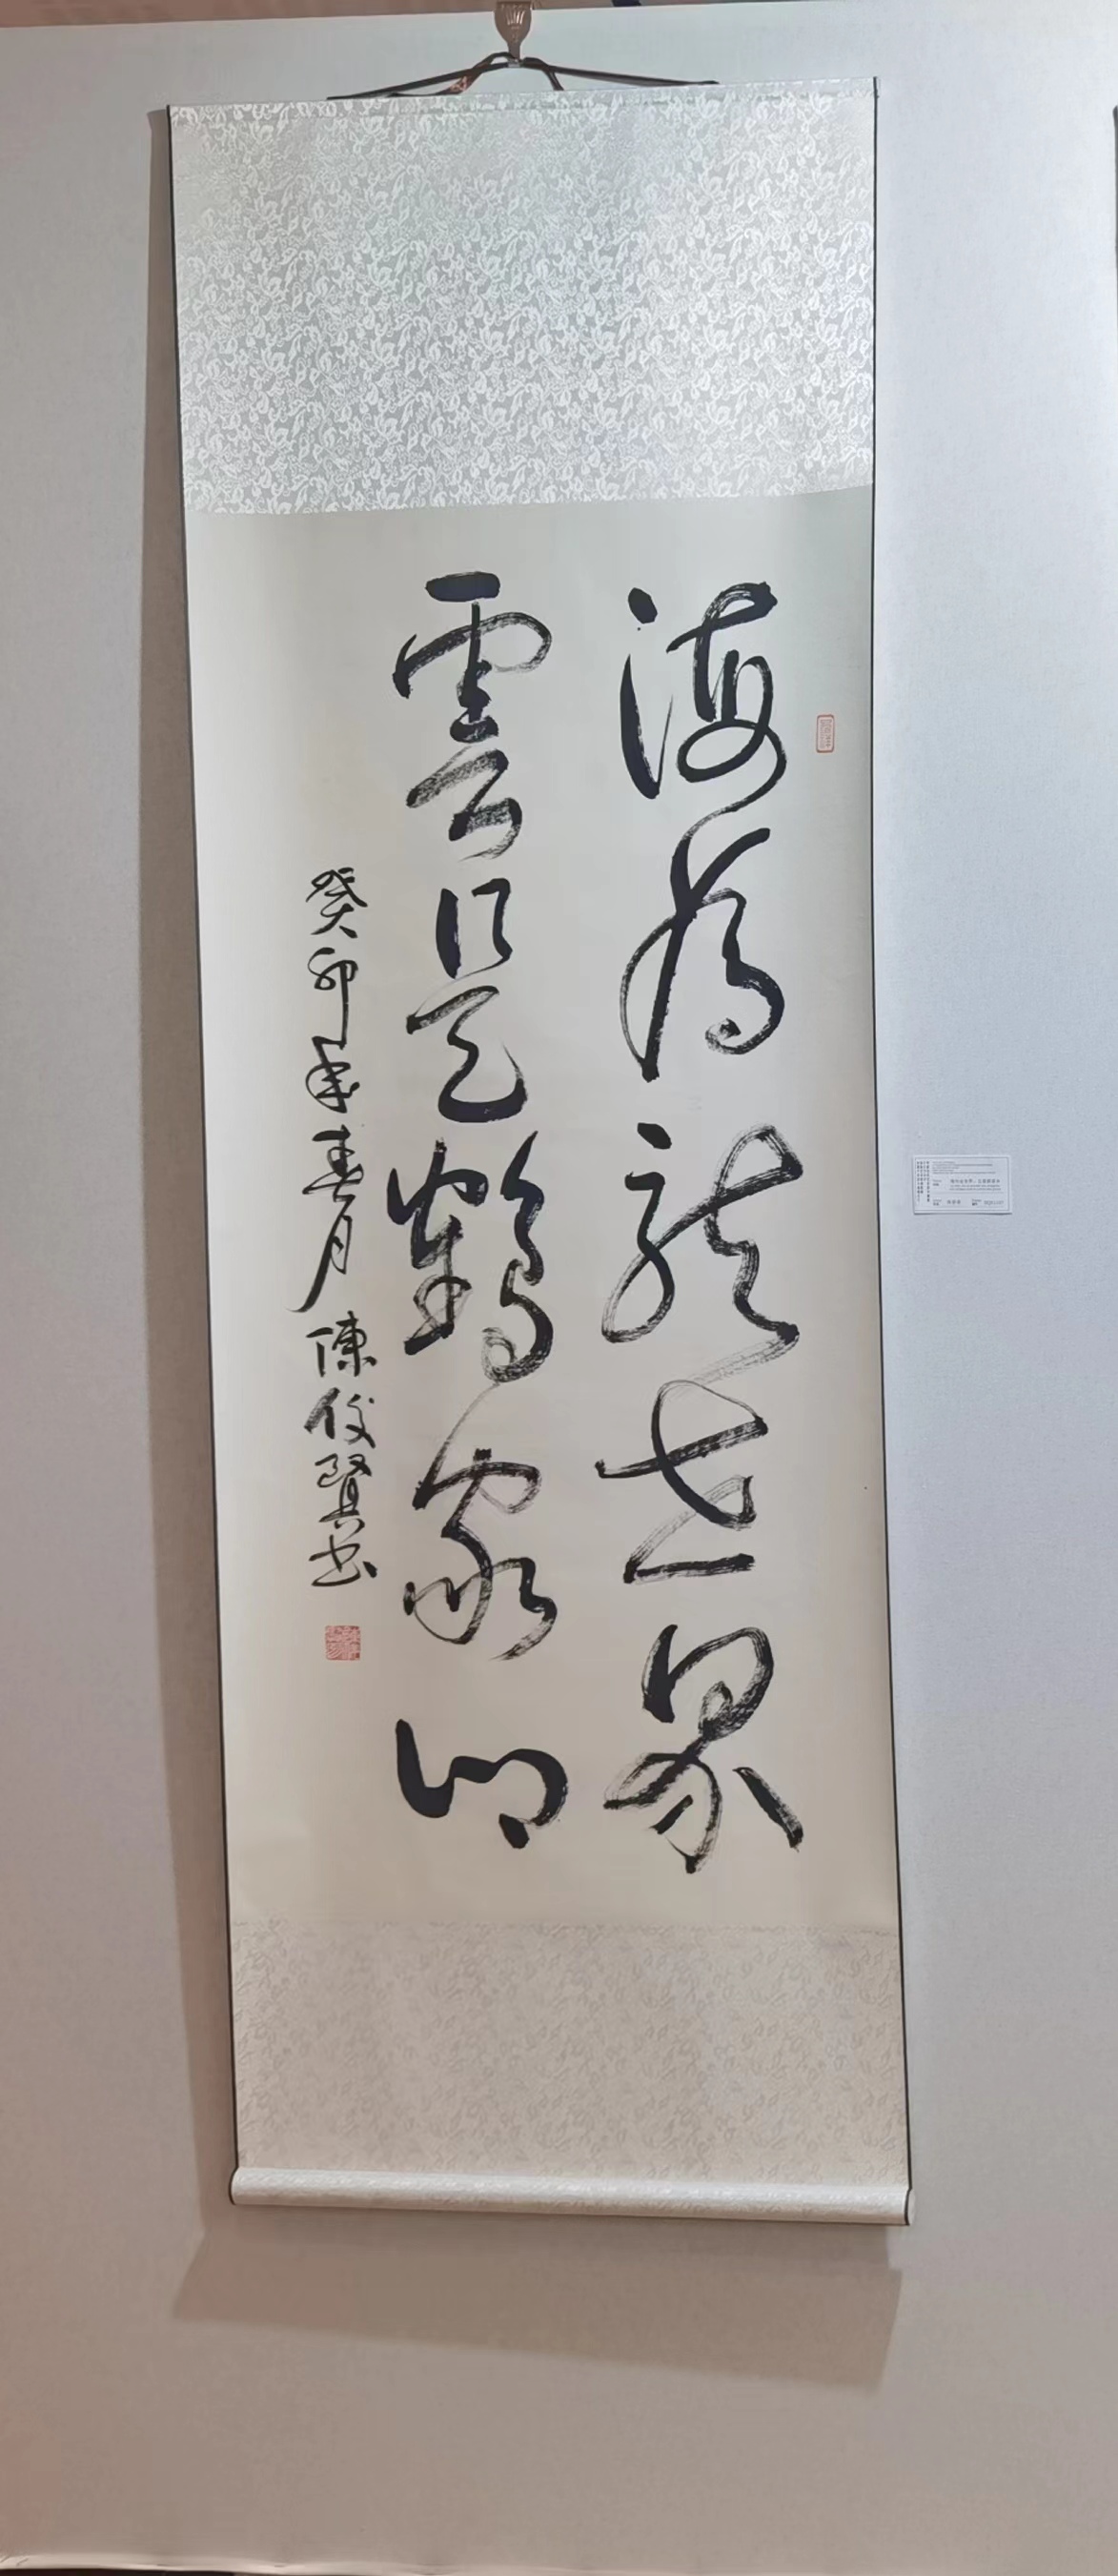 海為龍世界
雲是鶴家鄉
癸卯年春月陳俊賢书